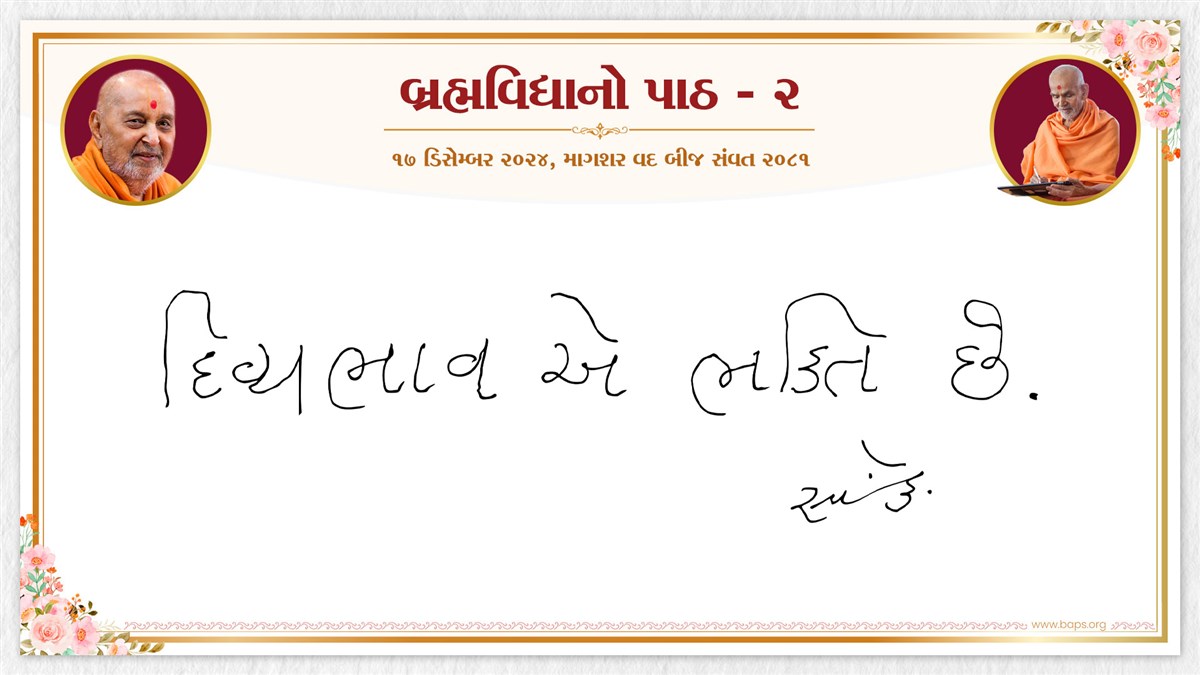 બ્રહ્મવિદ્યાનો પાઠ - ૨
૧૭ ડિસેમ્બર ૨૦૨૪, માગશર વદ બીજ સંવત ૨૦૮૧
દિવ્યભાવ એ ભક્તિ છે.
www.baps.org